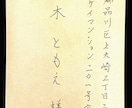 都品川区上大崎二丁目三
ケイマンション二〇一号
木ともえ様